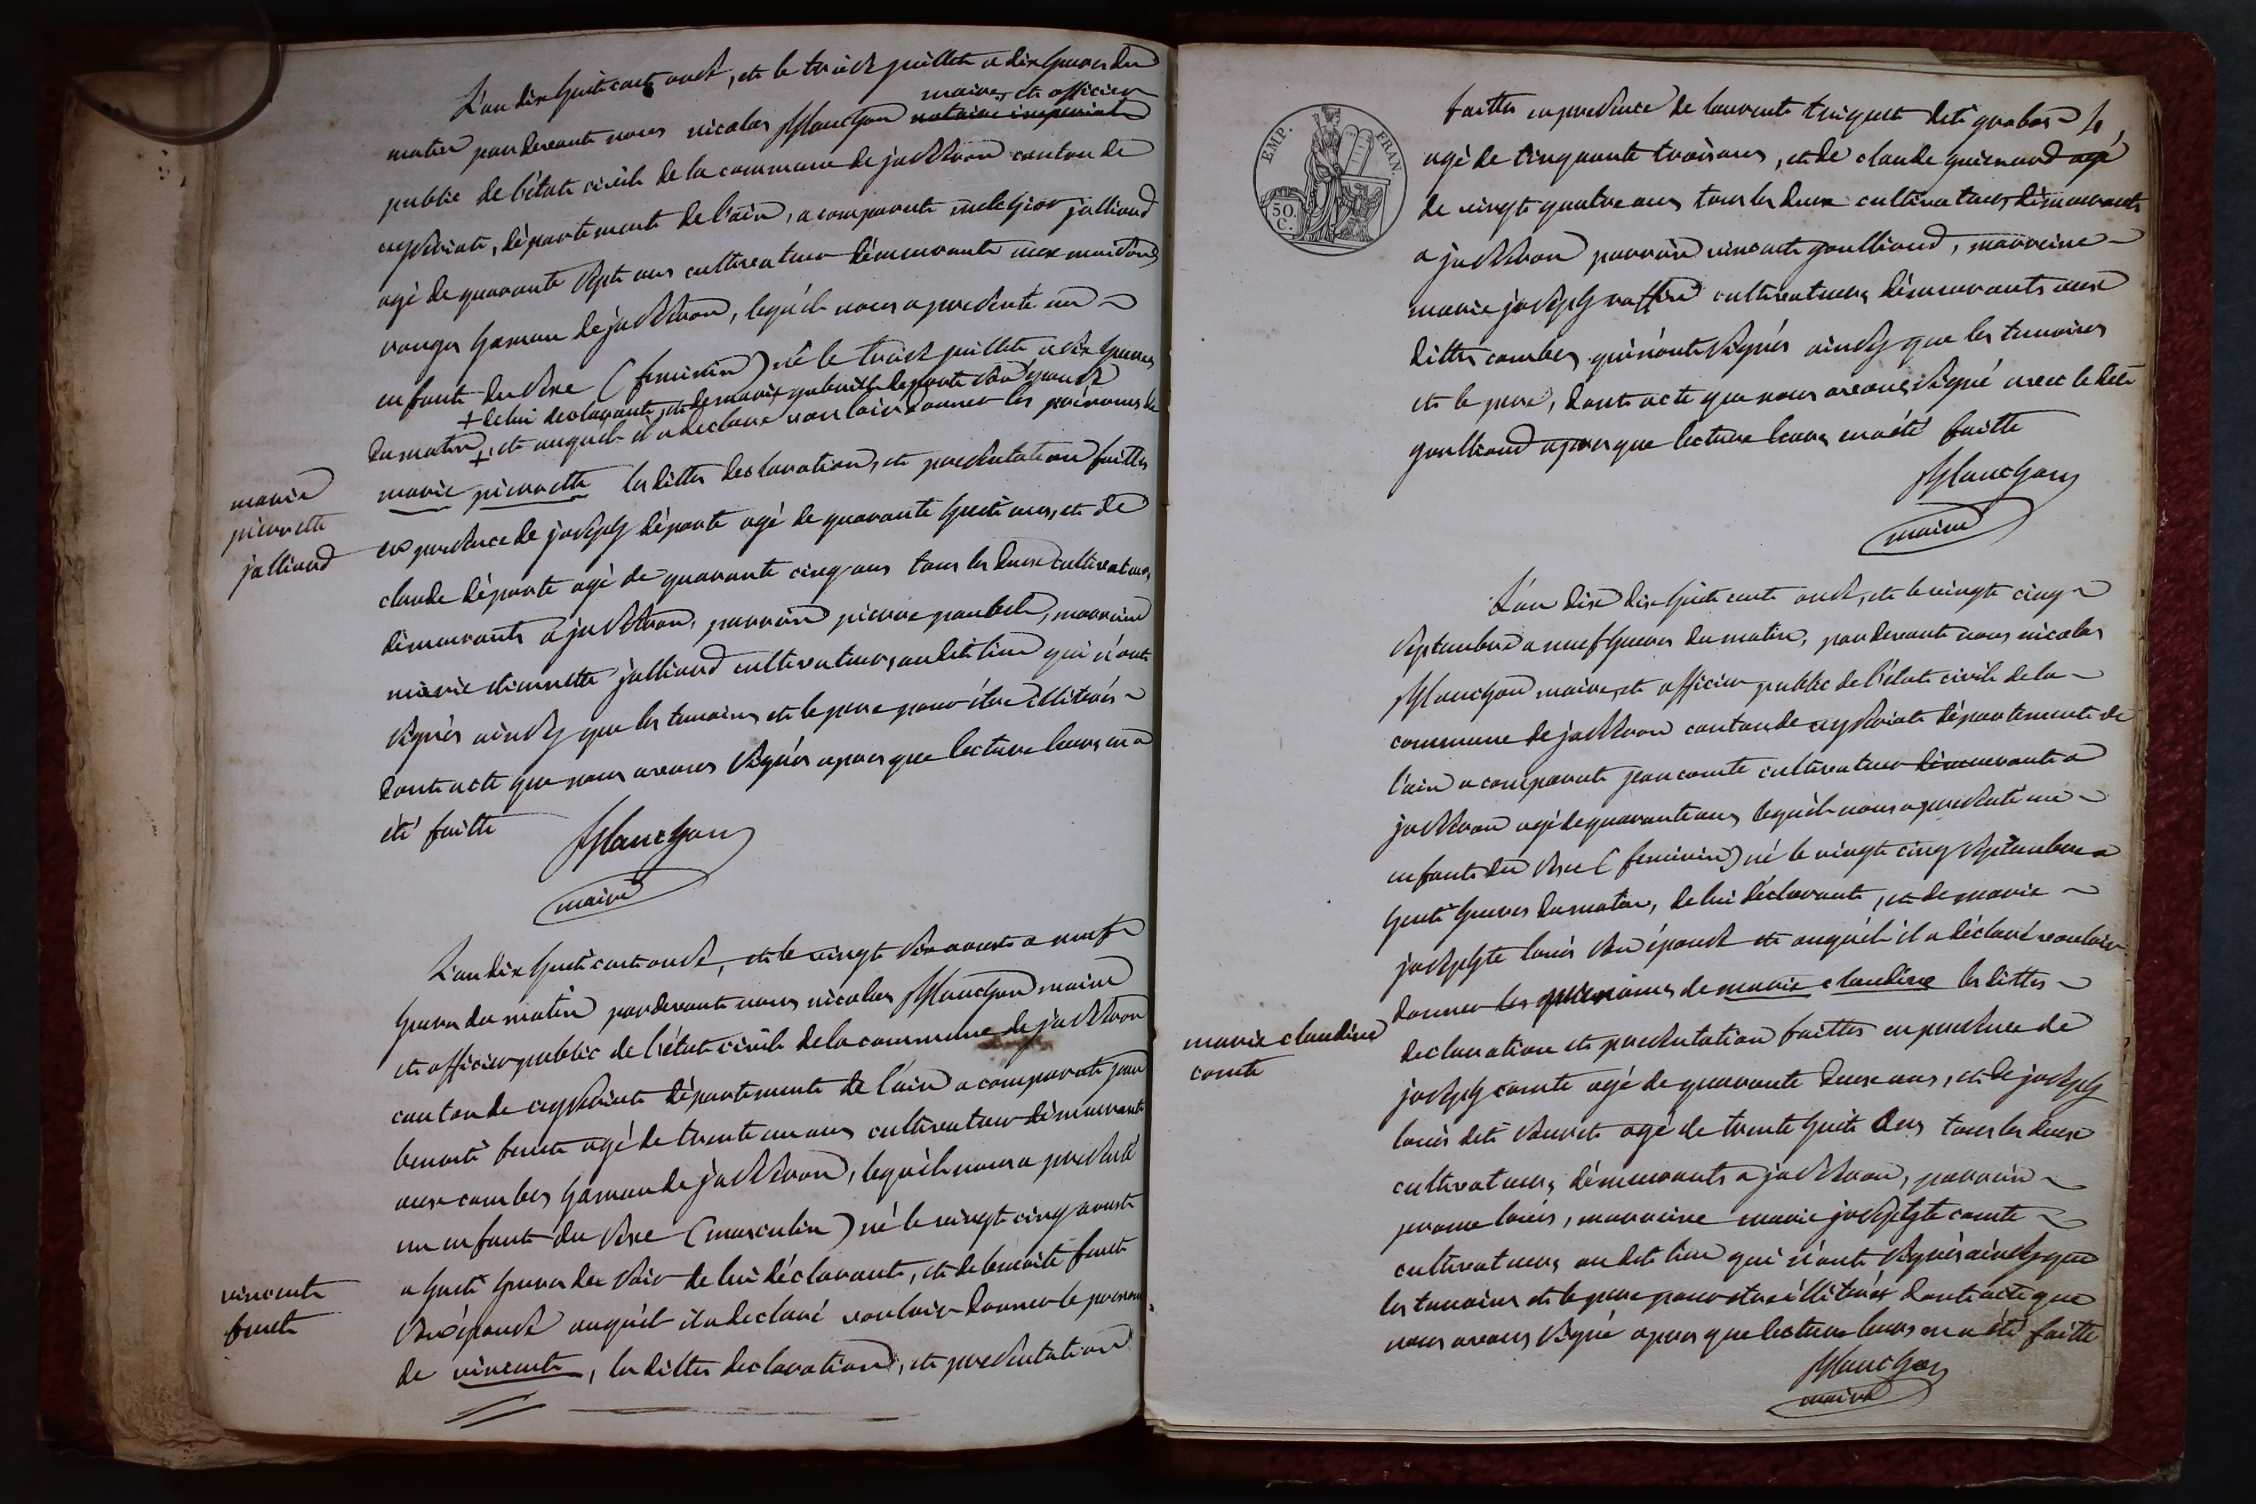 L'an dix huit cent onze, et le treize juillet a dix heures du
matin pardevant nous nicolas planchon notaire imperial maire, et officier
public de l'état civil de la commune de jasseron canton de
ceyzériat, département de l'ain, a comparu melchior jalliard
agé de quarante sept ans cultivateur demeurant aux maisons
rouges hameau de jasseron, lequ'el nous a presenté un
enfant du sexe (feminin) né le treize juillet a six heures
+ de lui declarant, et de marie gabrielle deporte son épouse
du matin +, et auquel il a declaré vouloir donner les prénoms de
marie pierrette les dittes declaration, et presentation faittes
en presence de joseph déporte agé de quarante huit ans, et de
claude déporte agé de quarante cinq ans tous les deux cultivateurs
demeurants a jasseron, parrain pierre paubel, marraine
marie etiennette jalliard cultivateurs audit lieu qui n'ont
signés ainsy que les temoins et le pere pour être illitérés
dont acte que nous avons signés apres que lecture leurs en a
été faitte
planchon
maire
marie
pierrette
jalliard
L'an dix huit cent onze, et le vingt six aoust a neuf
heures du matin pardevant nous nicolas planchon maire
et officier public de l'état civil de la commune de jasseron
canton de ceyzériat département de l'ain a comparu jean
benoit furet agé de trente un ans cultivateur demeurant
aux combes hameau de jasseron, lequ'el nous a presenté
un enfant du sexe (masculin) né le vingt cinq aoust
a huit heures du soir de lui déclarant, et de benoite furet
son épouse auqu'el il a declaré vouloir donner le prenom
de vincent, les dittes declaration, et presentation
vincent
furet
EMP. FRAN.
50.
C.
faittes en presence de laurent triquet dit grabas 4
agé de cinquante trois ans, et de claude guienard agé
de vingt quatre ans tous les deux cultivateurs demeurants
a jasseron parrain vincent goulliard, marraine
marie joseph raffin cultivateurs demeurants aux
dittes combes qui n'ont signés ainsy que les temoins
et le pere, dont acte que nous avons signé avec le dit
goulliard apres que lecture leurs en a été faitte
planchon
maire
L'an dix dix huit cent onze, et le vingt cinq
septembre a neuf heures du matin, pardevant nous nicolas
planchon maire, et officier public de l'état civil de la
commune de jasseron canton de ceyzériat département de
l'ain a comparu jean comte cultivateur demeurant a
jasseron agé de quarante ans lequ'el nous a presenté un
enfant du sexe (feminin) né le vingt cinq septembre a
huit heures du matin, de lui déclarant, et de marie
josephte louis son épouse et auqu'el il a déclaré vouloir
donner les prénoms de marie claudine les dittes
declaration et presentation faittes en presence de
joseph comte agé de quarante deux ans, et de joseph
louis dit agé de trente huit ans tous les deux
cultivateurs demeurants a jasseron, parrain
louis, marraine marie josephte comte
cultivateurs au dit lieu qui n'ont signés ainsy que
les temoins et le pere pour etre illitérés dont acte que
nous avons signé apres que lecture leurs en a été faitte
planchon
maire
marie claudine
comte